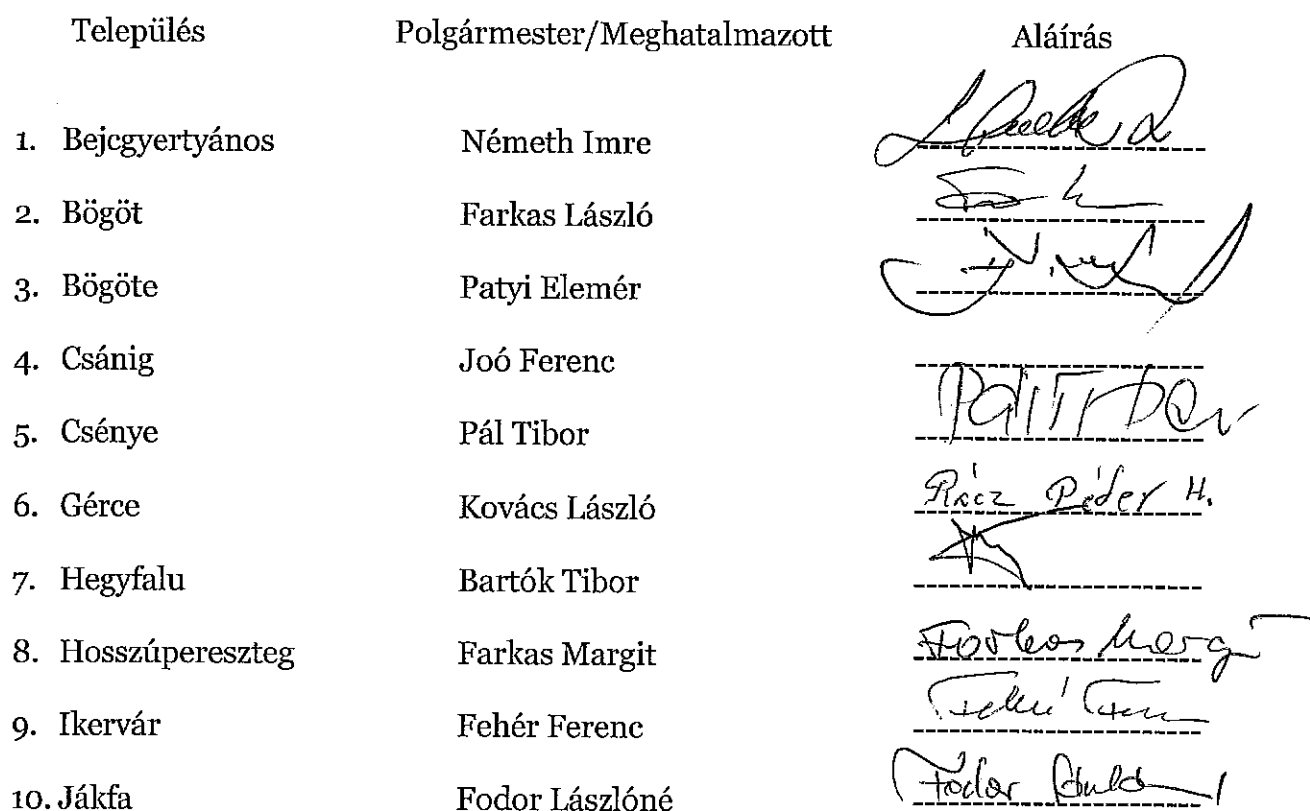 Település Polgármester/Meghatalmazott Aláírás
1. Bejcgyertyános Németh Imre
2. Bögöt Farkas László
3. Bögöte Patyi Elemér
4. Csánig Joó Ferenc
5. Csénye Pál Tibor Pál Tibor
6. Gérce Kovács László Rácz Péter H.
7. Hegyfalu Bartók Tibor
8. Hosszúpereszteg Farkas Margit Farkas Margit
9. Ikervár Fehér Ferenc Fehér Ferenc
10. Jákfa Fodor Lászlóné Fodor